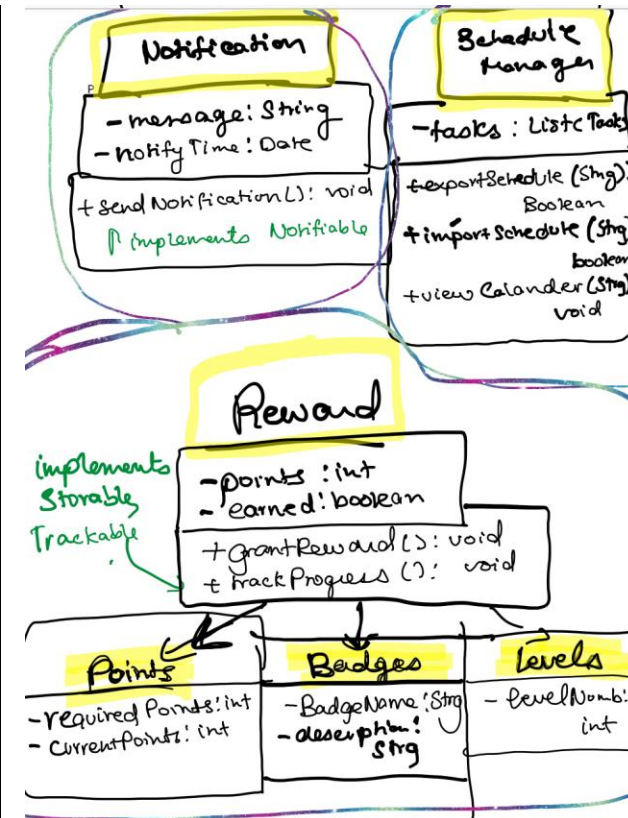 Notification
- message: String
- notifyTime: Date
+ sendNotification(): void
implements Notifiable
Schedule
Manager
- tasks : List< Tasks
+ exportSchedule (Strg):
Boolean
+ importSchedule (Strg)
boolean
+ view Calander (Strg)
void
Reward
implements
Storable,
Trackable
- points : int
- earned: boolean
+ grantReward(): void
+ trackProgress (): void
Points
- required Points: int
- currentPoints: int
Badges
- BadgeName: Strg
- description:
Strg
Levels
- levelNumb:
int